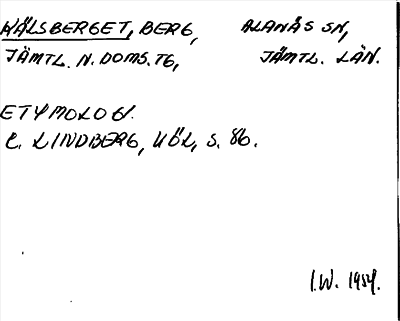 WÄLSBERGET, BERG, ALANÄS SN,
JÄMTL. N. DOMS. TG, JÄMTL. LÄN.
ETYMOLOGI.
C. LINDBERG, UÖL, S. 86.
I.W. 1984.